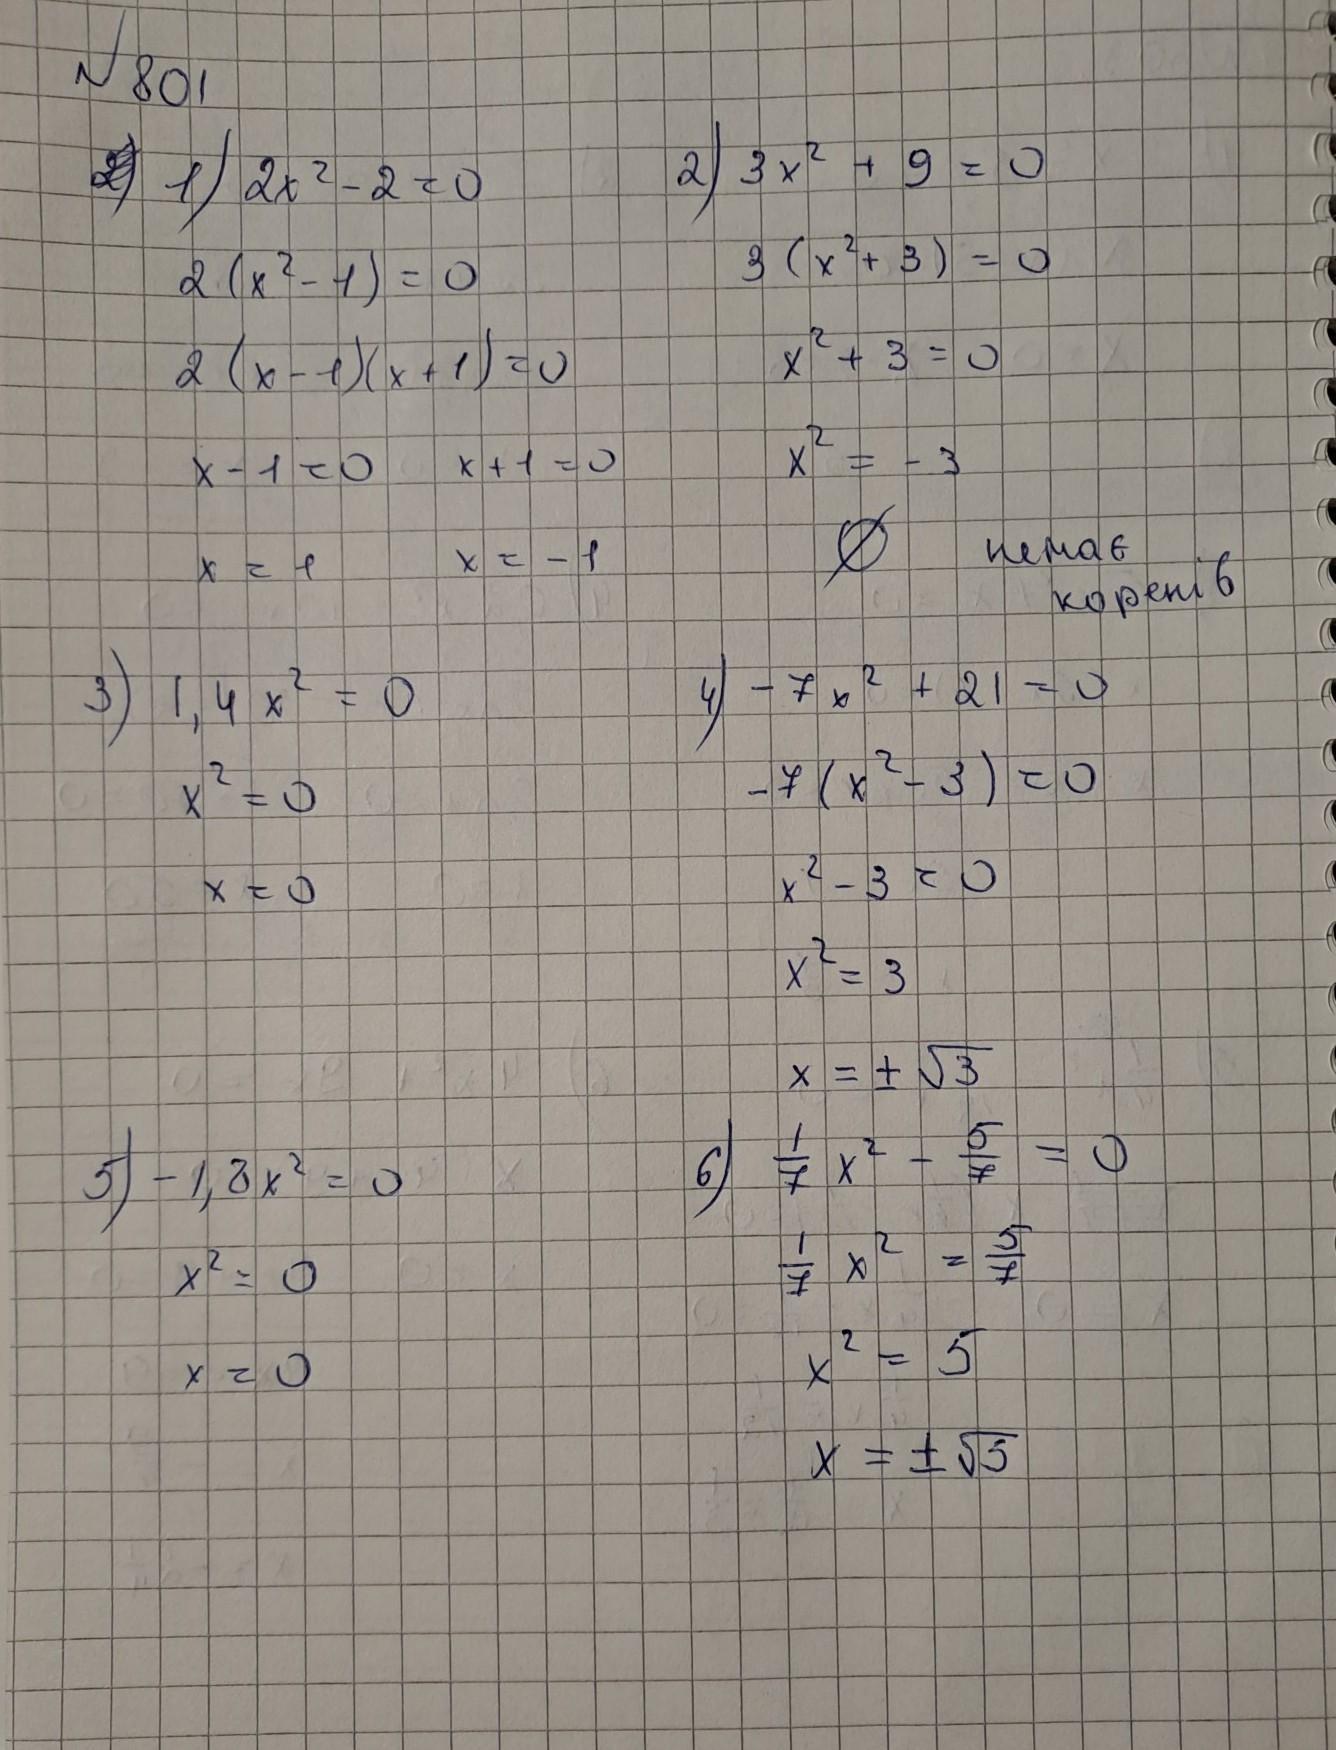 №801
1) 2x² - 2 = 0
2(x² - 1) = 0
2(x - 1)(x + 1) = 0
x - 1 = 0 x + 1 = 0
x = 1 x = -1
2) 3x² + 9 = 0
3(x² + 3) = 0
x² + 3 = 0
x² = -3
∅ немає
коренів
3) 1,4x² = 0
x² = 0
x = 0
4) -7x² + 21 = 0
-7(x² - 3) = 0
x² - 3 = 0
x² = 3
x = ±√3
5) -1,8x² = 0
x² = 0
x = 0
6) 1/7 x² - 5/7 = 0
1/7 x² = 5/7
x² = 5
x = ±√5